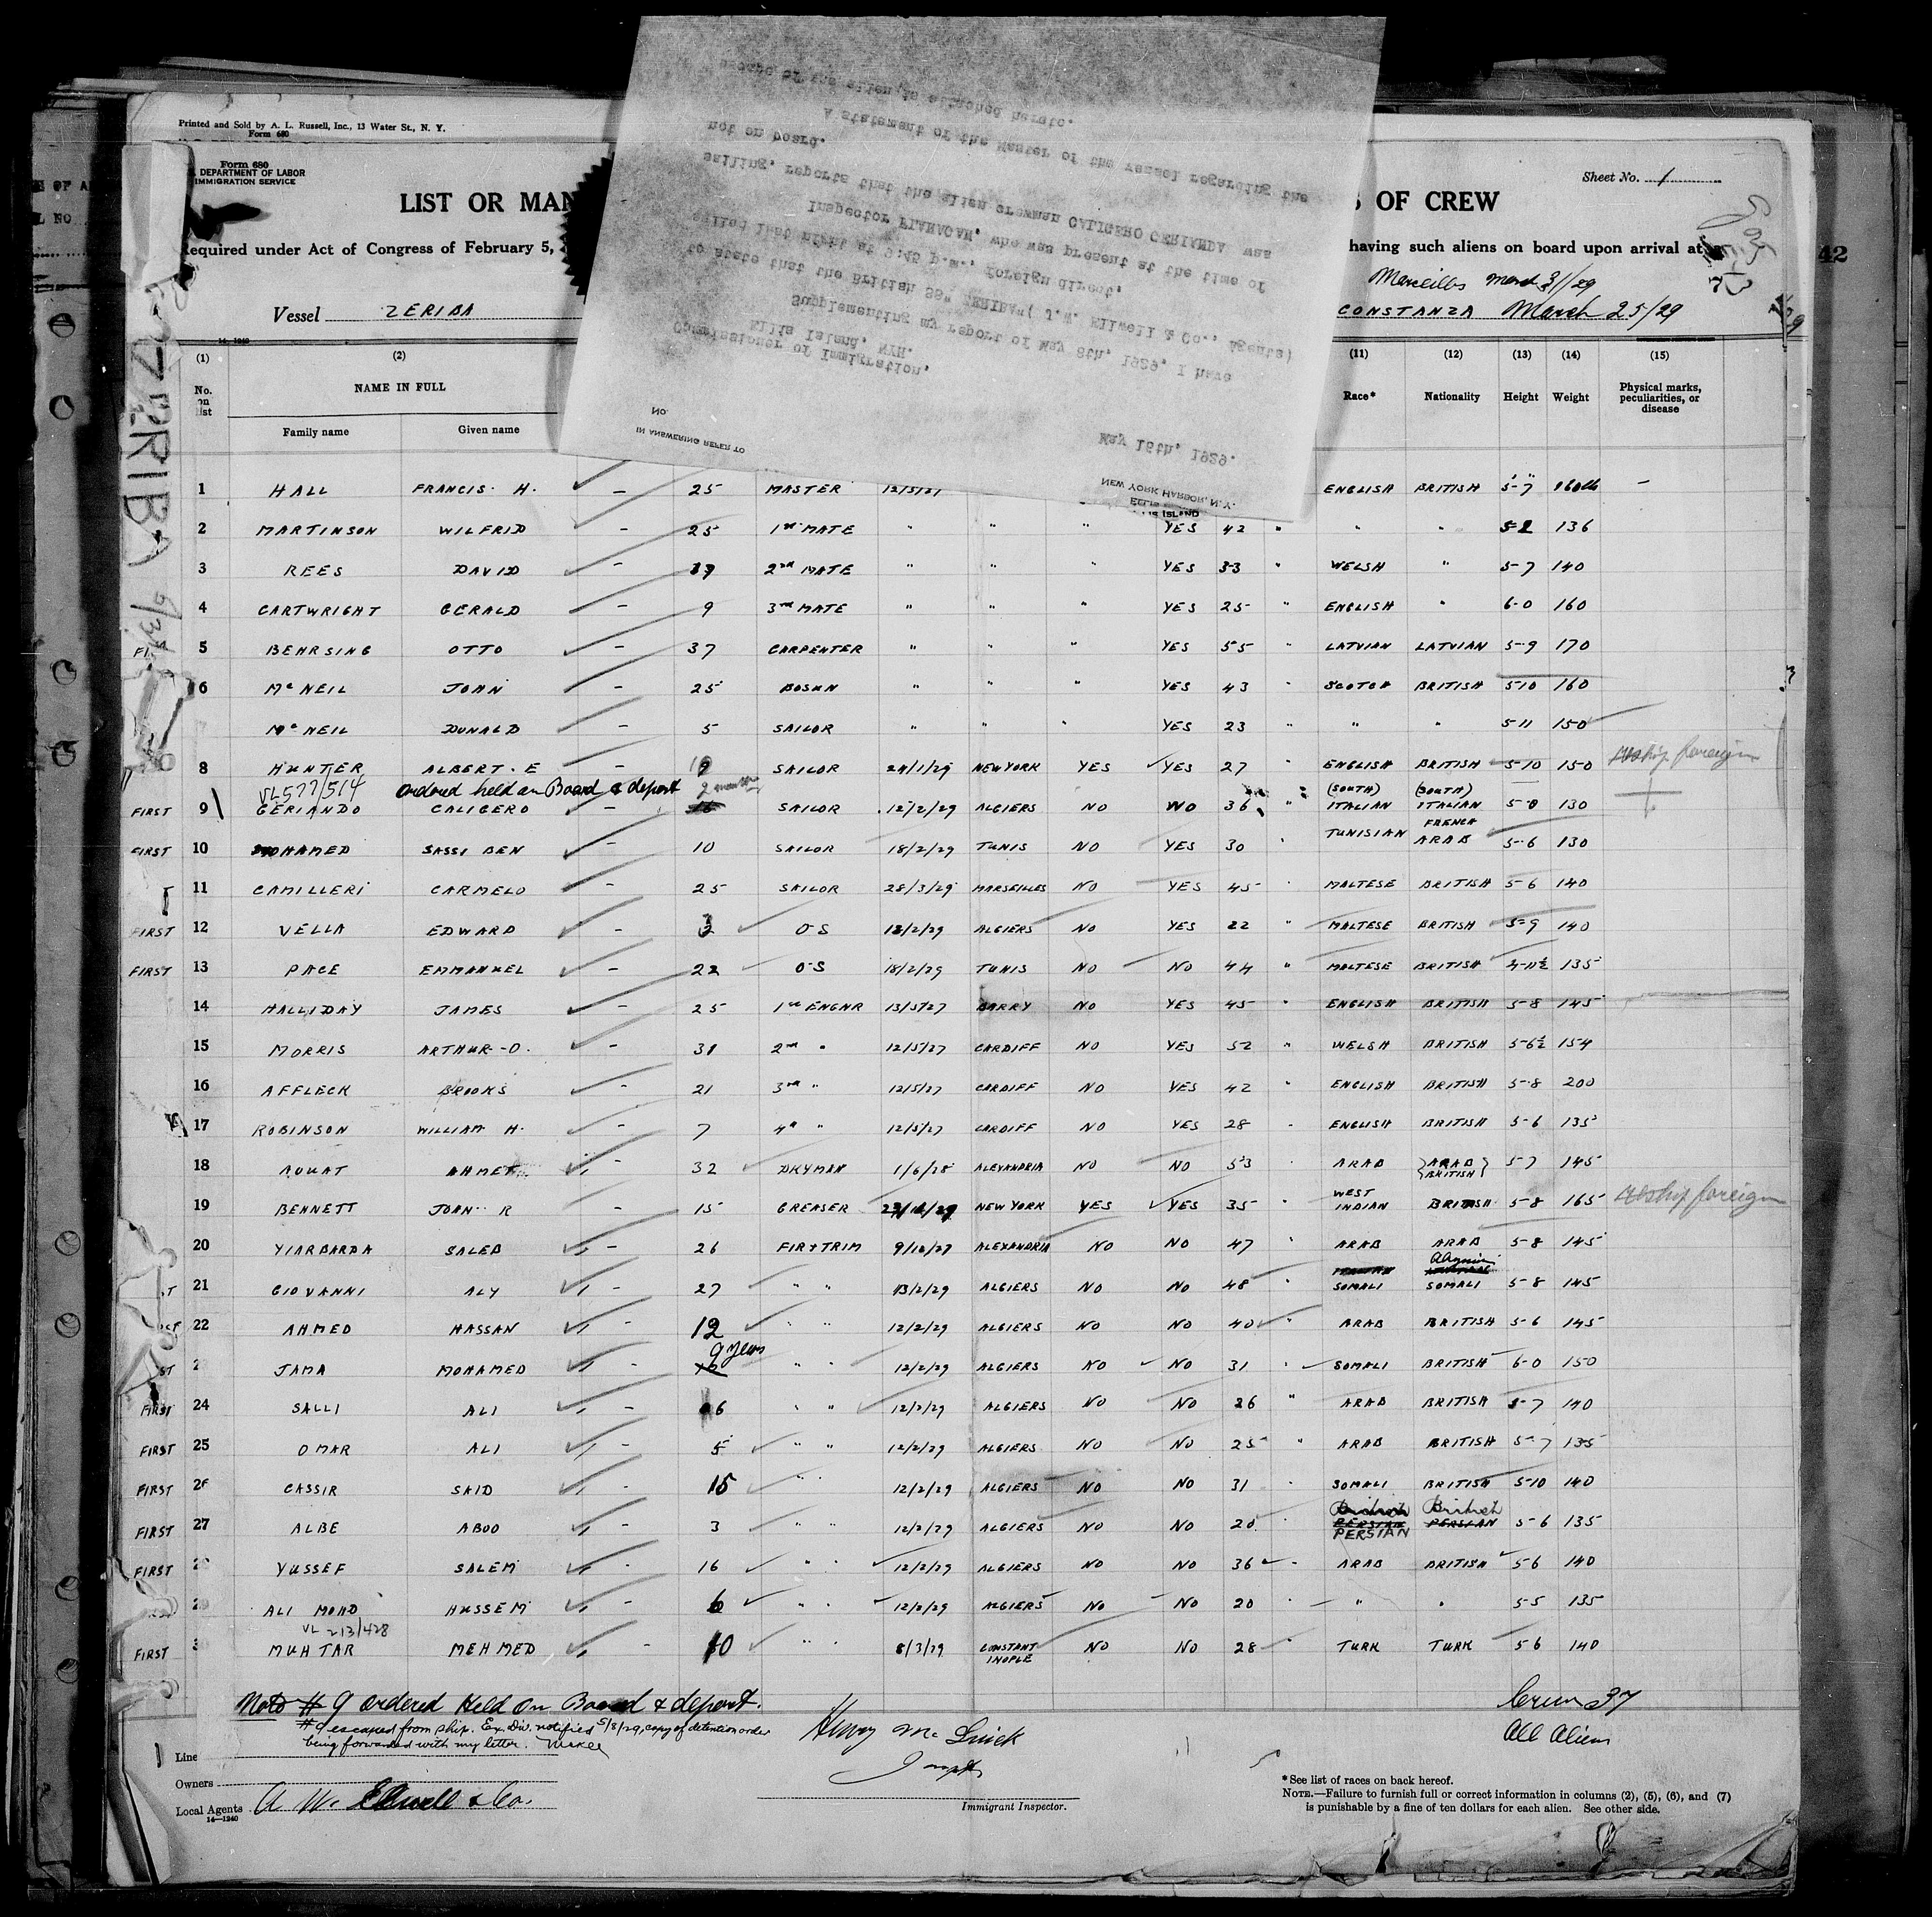 Printed and Sold by A. L. Russell, Inc., 13 Water St., N. Y.
Form 680
Form 680
DEPARTMENT OF LABOR
IMMIGRATION SERVICE
LIST OR MAN
S OF CREW
Sheet No. 1
Required under Act of Congress of February 5,
having such aliens on board upon arrival at
42
Vessel ZERIBA
Marseilles March 31/29
CONSTANZA March 25/29
ZERIBA
NEW YORK HARBOR, N.Y.
ELLIS ISLAND
IN ANSWERING REFER TO
NO.
May 16th, 1929.
Commissioner of Immigration,
Ellis Island, NYH.
Supplementing my report of May 8th, 1929, I have
to state that the British SS" ZERIBA"( J.W. Ellwell & Co., Agents)
sailed that night at 9:45 p.m., foreign direct.
Inspector FLANAGAN, who was present at the time of
sailing, reports that the alien crewman CALIGERO GERIANDA was
not on board.
A statement of the Master of the vessel regarding the
escape of the alien is attached hereto.
(1) (2) (11) (12) (13) (14) (15)
No. on list NAME IN FULL Race* Nationality Height Weight Physical marks, peculiarities, or disease
Family name Given name
1 HALL FRANCIS H. – 25 MASTER 12/5/27 ENGLISH BRITISH 5-7 160lb –
2 MARTINSON WILFRID – 25 1st MATE " " " YES 42 " " " 136
3 REES DAVID – 2nd MATE " " " YES 33 " WELSH " 5-7 140
4 CARTWRIGHT GERALD – 9 3rd MATE " " " YES 25 " ENGLISH " 6-0 160
5 BEHRSING OTTO – 37 CARPENTER " " " YES 55 " LATVIAN LATVIAN 5-9 170
6 McNEIL JOHN – 25 BOSUN " " " YES 43 " SCOTCH BRITISH 5-10 160
McNEIL DONALD – 5 SAILOR " " " YES 23 " " " 5-11 150
8 HUNTER ALBERT. E – SAILOR 24/1/29 NEW YORK YES YES 27 " ENGLISH BRITISH 5-10 150 reship foreign
VL577/514 Ordered held on Board & deport 2 months (SOUTH) (SOUTH)
FIRST 9 GERIANDO CALIGERO – SAILOR 12/2/29 ALGIERS NO NO 36 " ITALIAN ITALIAN 5-8 130
FRENCH
FIRST 10 MOHAMED SASSI BEN – 10 SAILOR 18/2/29 TUNIS NO YES 30 " TUNISIAN ARAB 5-6 130
11 CAMILLERI CARMELO – 25 SAILOR 28/3/29 MARSEILLES NO YES 45 " MALTESE BRITISH 5-6 140
FIRST 12 VELLA EDWARD – 3 OS 12/2/29 ALGIERS NO YES 22 " MALTESE BRITISH 5-9 140
FIRST 13 PACE EMMANUEL – 22 OS 18/2/29 TUNIS NO NO 44 " MALTESE BRITISH 4-11½ 135
14 HALLIDAY JAMES – 25 1st ENGNR 13/5/27 BARRY NO YES 45 " ENGLISH BRITISH 5-8 145
15 MORRIS ARTHUR-O. – 31 2nd " 12/5/27 CARDIFF NO YES 52 " WELSH BRITISH 5-6½ 154
16 AFFLECK BROOKS – 21 3rd " 12/5/27 CARDIFF NO YES 42 " ENGLISH BRITISH 5-8 200
17 ROBINSON WILLIAM H. – 7 4th " 12/5/27 CARDIFF NO YES 28 " ENGLISH BRITISH 5-6 135
18 AHMET – 32 DKYMAN 1/6/28 ALEXANDRIA NO NO 53 " ARAB ARAB BRITISH 5-7 145
19 BENNETT JOHN R – 15 GREASER NEW YORK YES YES 35 " WEST INDIAN BRITISH 5-8 165 reship foreign
20 YIARBARDA SALEB – 26 FIR & TRIM 9/12/27 ALEXANDRIA NO NO 47 " ARAB ARAB 5-8 145
21 GIOVANNI ALY – 27 " " 13/2/29 ALGIERS NO NO 48 " SOMALI SOMALI 5-8 145
22 AHMED HASSAN – 12 " " 12/2/29 ALGIERS NO NO 40 " ARAB BRITISH 5-6 145
9 years
JAMA MOHAMED – " " 12/2/29 ALGIERS NO NO 31 " SOMALI BRITISH 6-0 150
FIRST 24 SALLI ALI – 6 " " 12/2/29 ALGIERS NO NO 26 " ARAB BRITISH 5-7 140
FIRST 25 OMAR ALI – 5 " " 12/2/29 ALGIERS NO NO 25 " ARAB BRITISH 5-7 135
FIRST 26 CASSIR SAID – 15 " " 12/2/29 ALGIERS NO NO 31 " SOMALI BRITISH 5-10 140
British British
FIRST 27 ALBE ABOO – 3 " " 12/2/29 ALGIERS NO NO 20 " PERSIAN PERSIAN 5-6 135
PERSIAN
FIRST YUSSEF SALEM – 16 " " 12/2/29 ALGIERS NO NO 36 " ARAB BRITISH 5-6 140
29 ALI MOHD HUSSEM – 6 " " 12/2/29 ALGIERS NO NO 20 " " " 5-5 135
VL 213/428
FIRST MUHTAR MEHMED – 10 " " 8/3/29 CONSTANTINOPLE NO NO 28 " TURK TURK 5-6 140
Note # 9 ordered Held On Board & deport.
#9 escaped from ship. Ex. Div. notified 5/8/29, copy of detention order
being forwarded with my letter.
Crew 37
All Aliens
Henry Mc
Line
Owners
Local Agents
14—1240
Immigrant Inspector.
*See list of races on back hereof.
NOTE.—Failure to furnish full or correct information in columns (2), (5), (6), and (7)
is punishable by a fine of ten dollars for each alien. See other side.